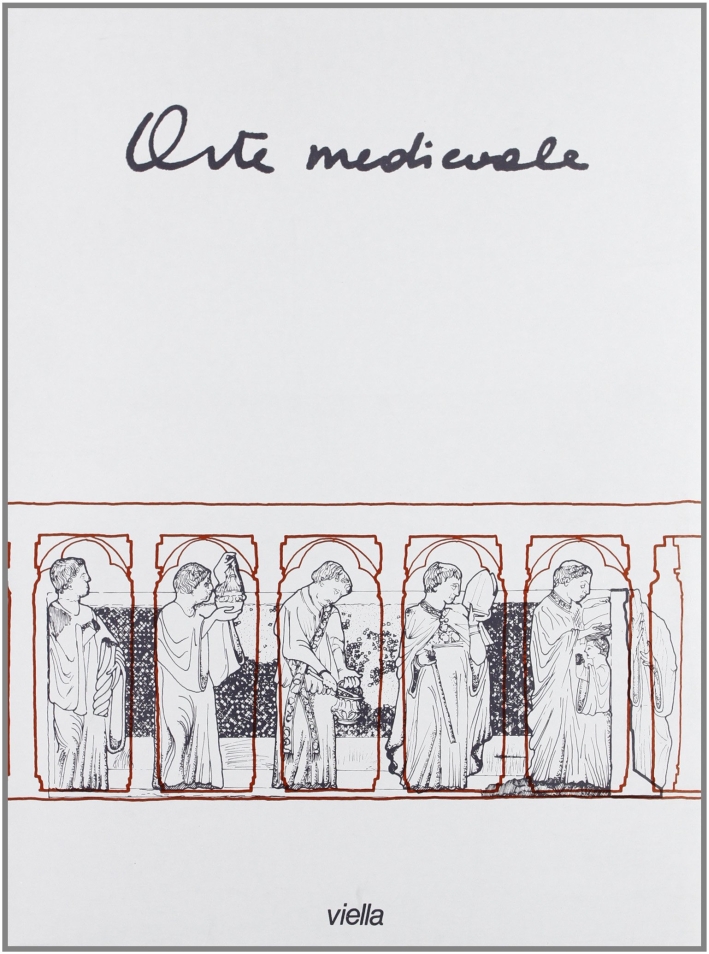 Arte medievale
viella